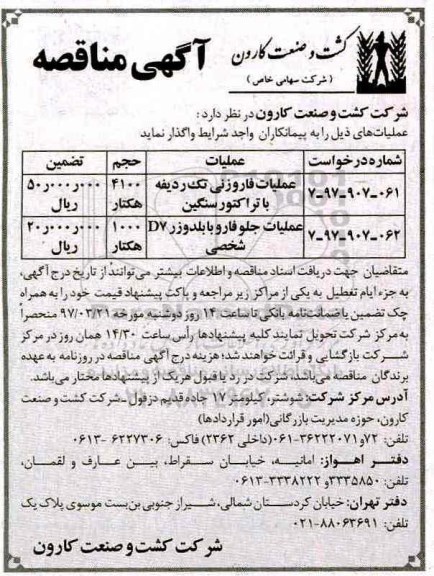 کشت و صنعت کارون
( شرکت سهامی خاص )
آگهی مناقصه
شرکت کشت و صنعت کارون در نظر دارد :
عملیات‌های ذیل را به پیمانکاران واجد شرایط واگذار نماید
شماره درخواست عملیات حجم تضمین
۷-۹۷-۹۰۷-۰۶۱ عملیات فاروزنی تک ردیفه با تراکتور سنگین ۴۱۰۰ هکتار ۵۰ر۰۰۰ر۰۰۰ ریال
۷-۹۷-۹۰۷-۰۶۲ عملیات جلو فارو با بلدوزر D۷ شخصی ۱۰۰۰ هکتار ۲۰ر۰۰۰ر۰۰۰ ریال
متقاضیان جهت دریافت اسناد مناقصه و اطلاعات بیشتر می‌توانند از تاریخ درج آگهی،
به جزء ایام تعطیل به یکی از مراکز زیر مراجعه و پاکت پیشنهاد قیمت خود را به همراه
چک تضمین یا ضمانت‌نامه بانکی تا ساعت ۱۴ روز دوشنبه مورخه ۹۷/۰۳/۲۱ منحصراً
به مرکز شرکت تحویل نمایند کلیه پیشنهادها رأس ساعت ۱۴/۳۰ همان روز در مرکز
شرکت بازگشایی و قرائت خواهند شد؛ هزینه درج آگهی مناقصه در روزنامه به عهده
برندگان مناقصه می‌باشد، شرکت در رد یا قبول هریک از پیشنهادها مختار می‌باشد.
آدرس مرکز شرکت: شوشتر، کیلومتر ۱۷ جاده قدیم دزفول-شرکت کشت و صنعت
کارون، حوزه مدیریت بازرگانی(امور قراردادها)
تلفن: ۷۲و۳۶۲۲۲۰۷۱-۰۶۱(داخلی ۲۳۶۲) فاکس: ۶۲۲۷۳۰۶-۰۶۱۳
دفتر اهواز: امانیه، خیابان سقراط، بین عارف و لقمان،
تلفن: ۳۳۳۵۸۵۰و ۳۳۳۸۲۲۲-۰۶۱۳
دفتر تهران: خیابان کردستان شمالی، شیراز جنوبی بن‌بست موسوی پلاک یک
تلفن: ۸۸۰۶۳۶۹۱-۰۲۱
شرکت کشت و صنعت کارون